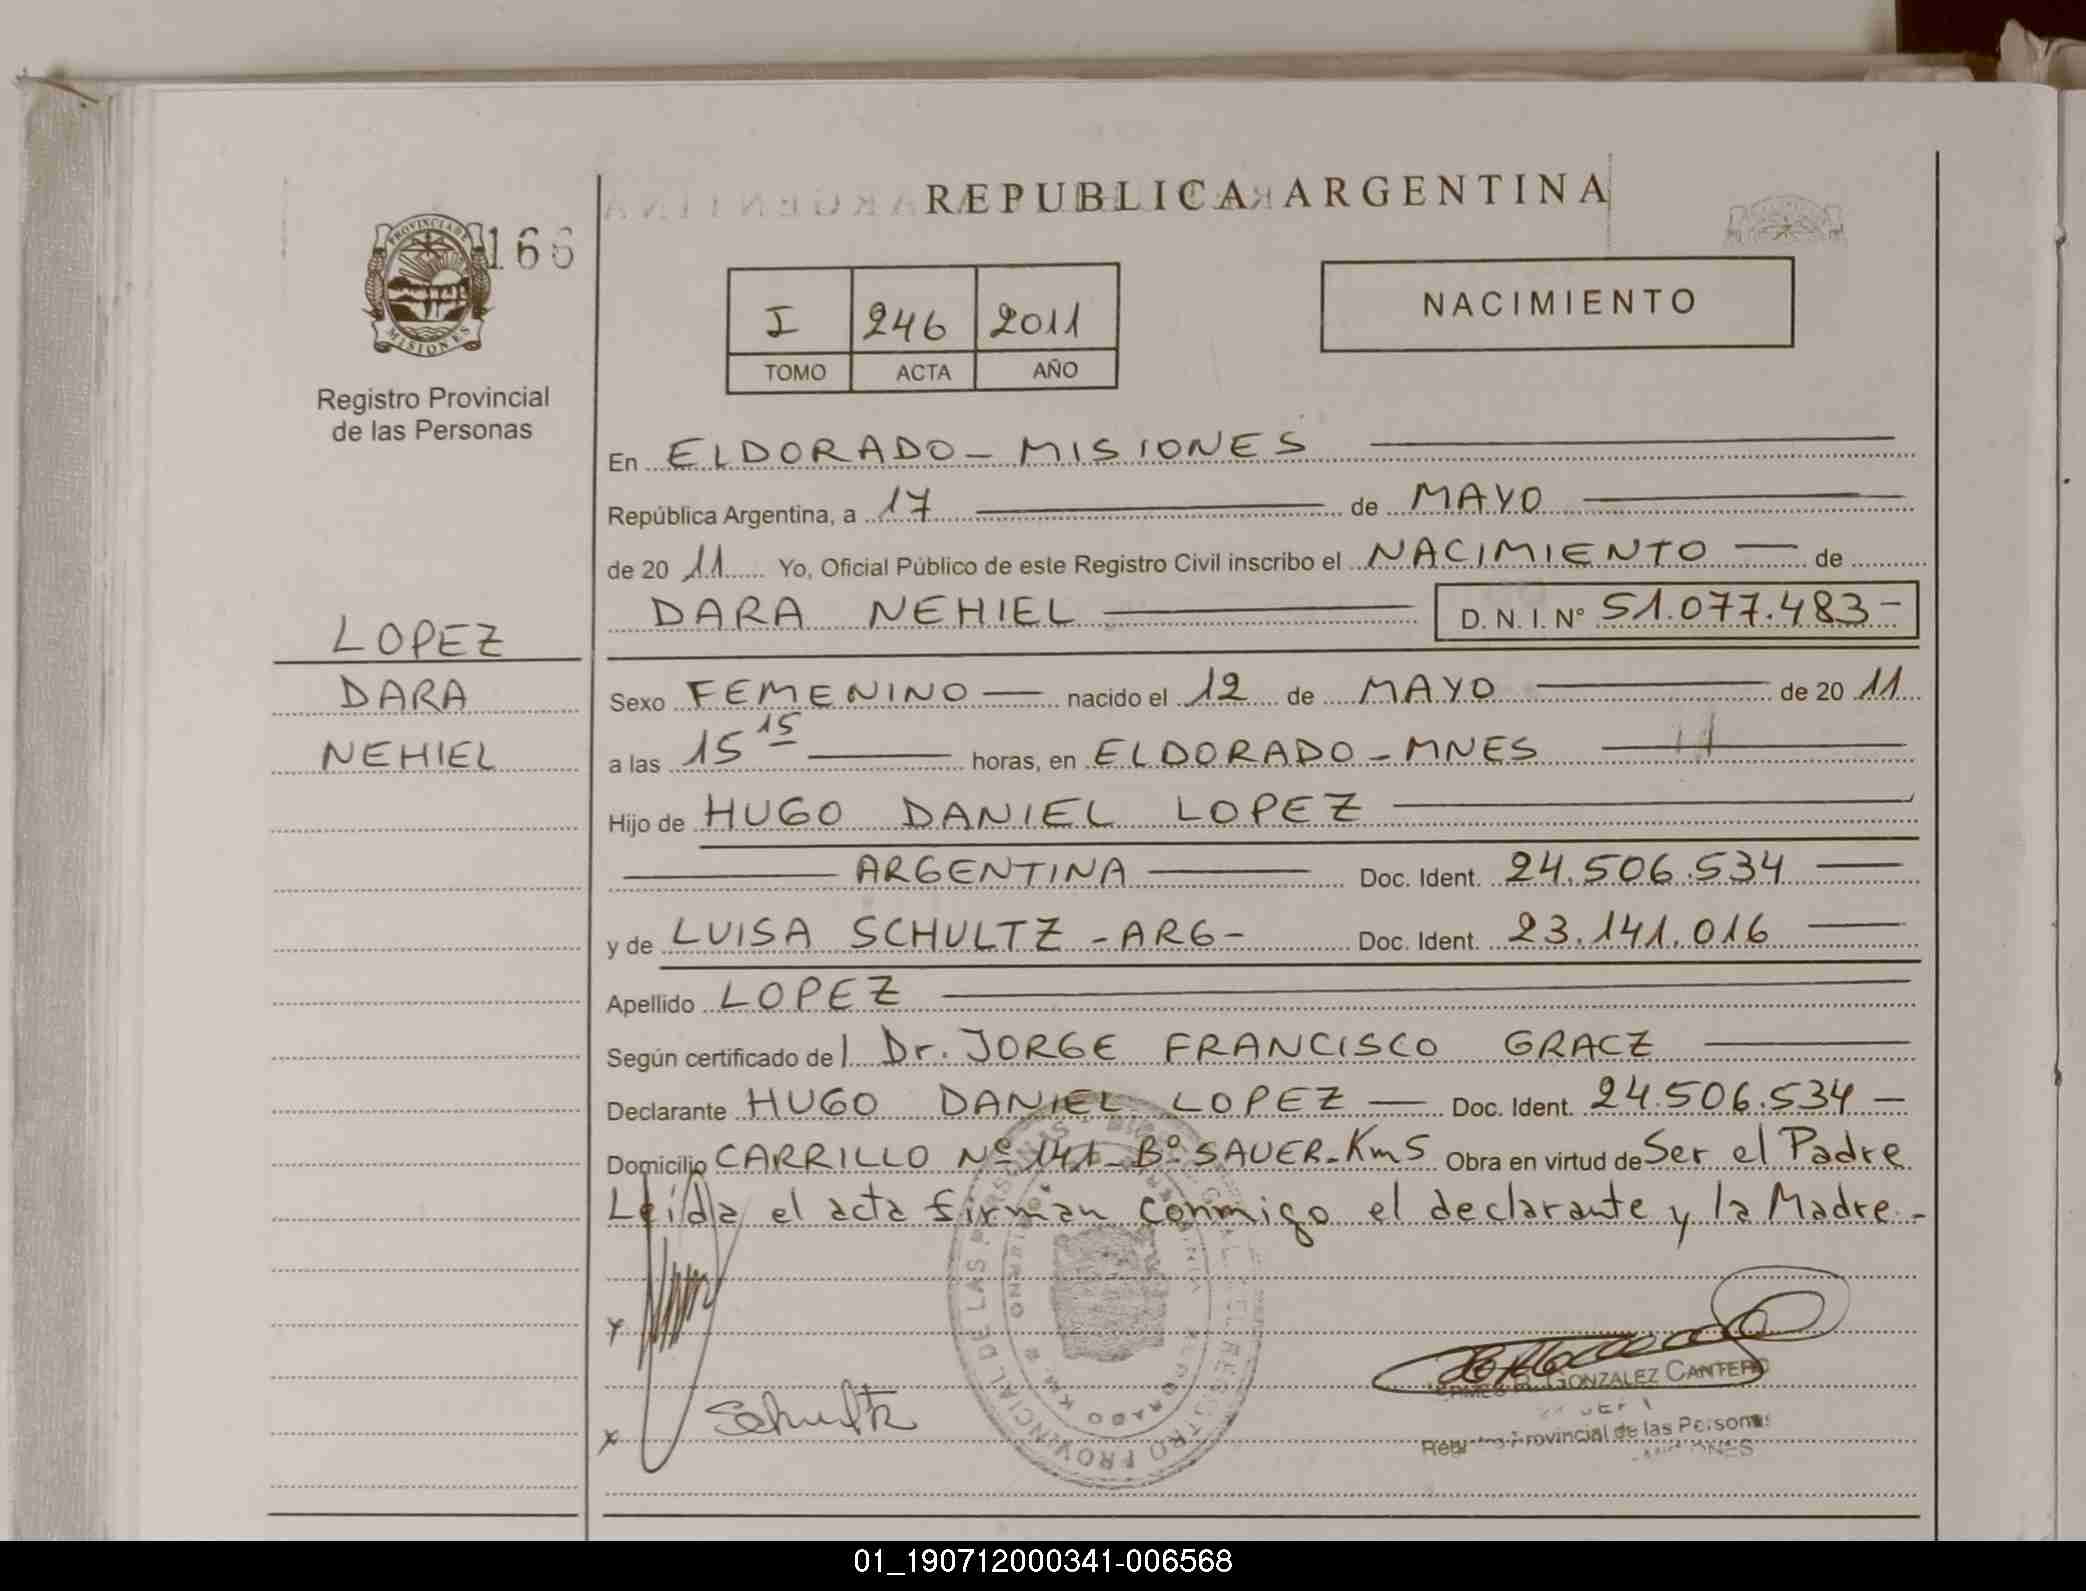 REPUBLICA ARGENTINA
PROVINCIA DE
MISIONES
166
Registro Provincial
de las Personas
I 246 2011
TOMO ACTA AÑO
NACIMIENTO
En ELDORADO - MISIONES
República Argentina, a 17 de MAYO
de 20 11 Yo, Oficial Público de este Registro Civil inscribo el NACIMIENTO de
DARA NEHIEL D. N. I. Nº 51.077.483-
LOPEZ
DARA
NEHIEL
Sexo FEMENINO nacido el 12 de MAYO de 20 11
a las 15 15 horas, en ELDORADO - MNES
Hijo de HUGO DANIEL LOPEZ
ARGENTINA Doc. Ident. 24.506.534
y de LUISA SCHULTZ - ARG - Doc. Ident. 23.141.016
Apellido LOPEZ
Según certificado del Dr. JORGE FRANCISCO GRACZ
Declarante HUGO DANIEL LOPEZ Doc. Ident. 24.506.534
Domicilio CARRILLO Nº 141 - Bº SAUER - Km 5 Obra en virtud de Ser el Padre
Leída el acta firman conmigo el declarante y la Madre.-
Schultz
GONZALEZ CANTERO
Provincial de las Personas
01_190712000341-006568